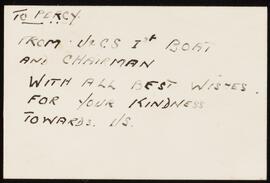 TO PERCY.
FROM J2CS 1st BOAT
AND CHAIRMAN
WITH ALL BEST WISHES.
FOR YOUR KINDNESS
TOWARDS. US.